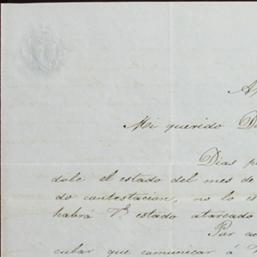 A
Mi querido D
Dias p
dole el estado del mes de
do contestacion, no lo es
habrá V. estado atareado
Por ac
cular que comunicar á V